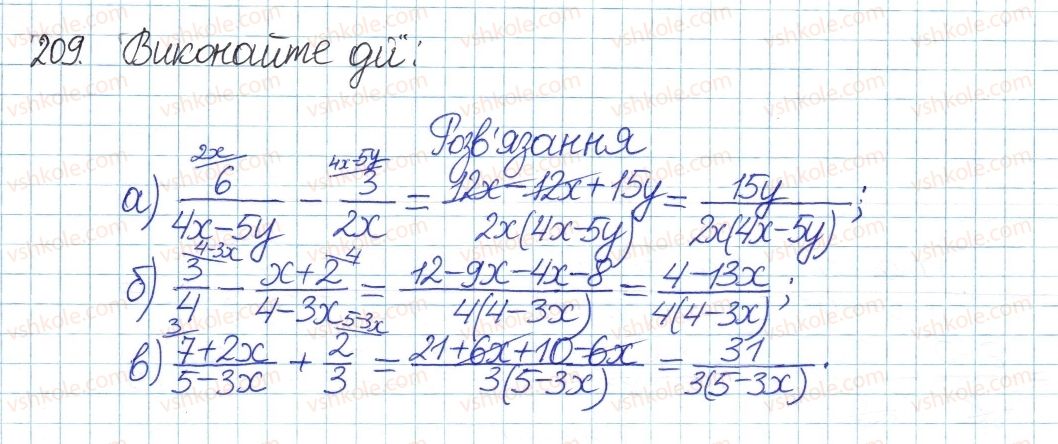 209. Виконайте дії:
Розв'язання
а) 6/(4x-5y) (2x) - 3/2x (4x-5y) = (12x-12x+15y)/(2x(4x-5y)) = 15y/(2x(4x-5y));
б) 3/4 (4-3x) - (x+2)/(4-3x) (4) = (12-9x-4x-8)/(4(4-3x)) = (4-13x)/(4(4-3x));
в) (7+2x)/(5-3x) (3) + 2/3 (5-3x) = (21+6x+10-6x)/(3(5-3x)) = 31/(3(5-3x)).
vshkole.com